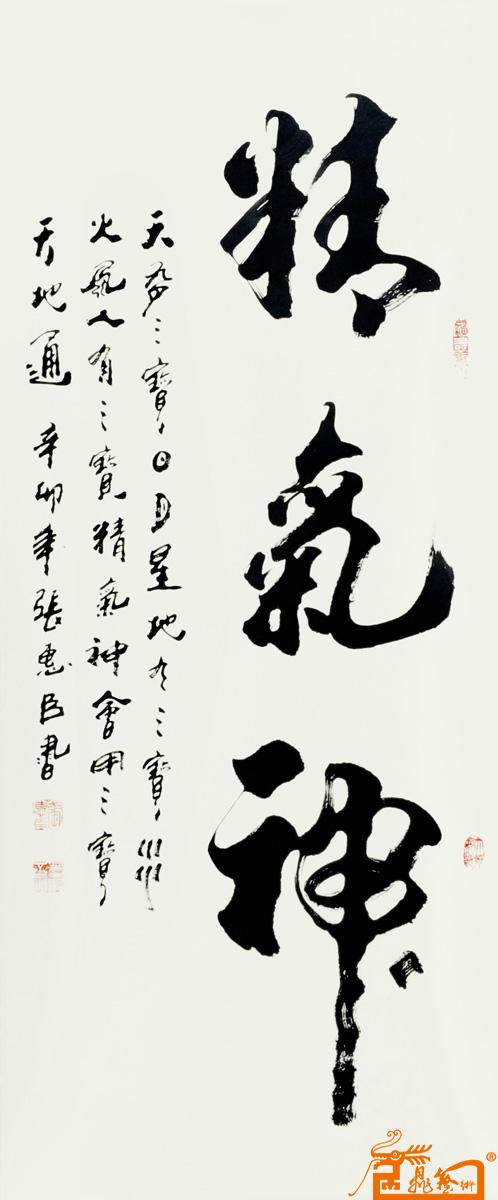 精氣神
天有三寶日月星地有三寶水
火風人有三寶精氣神會用三寶
天地通 辛卯年張惠臣書